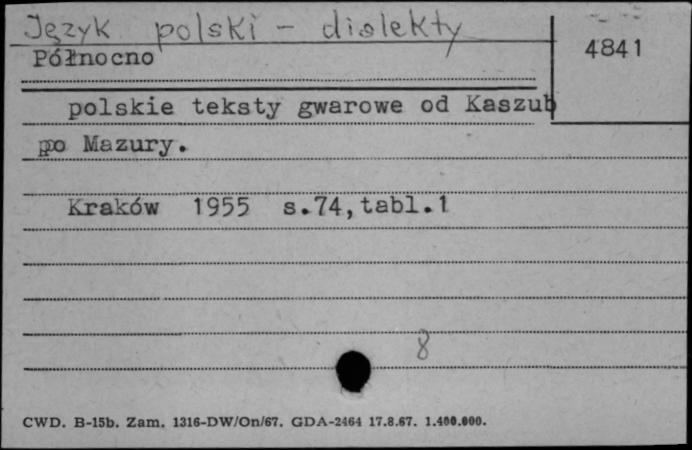 Język polski - dialekty
4841
Północno
polskie teksty gwarowe od Kaszub
po Mazury.
Kraków 1955 s.74,tabl.1
8
CWD. B-15b. Zam. 1316-DW/On/67. GDA-2464 17.8.67. 1.400.000.